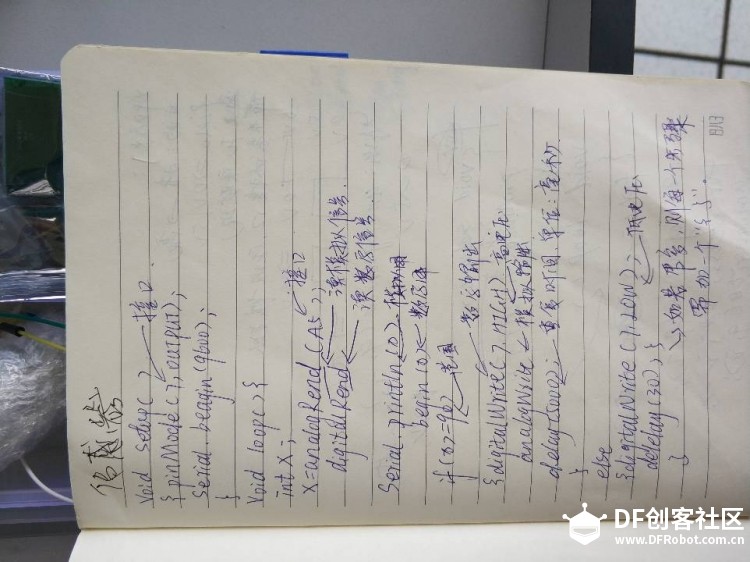 传感器
Void setup( )
{ pinMode( 7, output); 接口
Serial. beagin(9600);
}
Void loop( ) {
int x;
x=analogRead (A5); 接口
读模拟信号.
digitalRead 读数字信号.
Serial. println(0)
begin (0) 数字
if (x>=90) 范围
{ digitalWrite( 7, HIGH) 高电压 数字输出
analogWrite 模拟输出
delay(5000); 重复时间.单位:毫秒
}
else
{ digitalWrite ( 7, LOW); 低电压
delelay(30); }
} 如果 则每一个
加一个“5”.
DF创客社区
www.DFRobot.com.cn